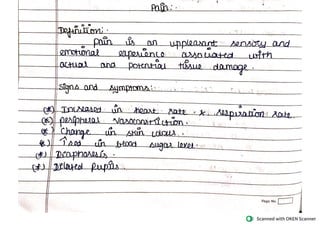 Pain:-
Definition:-
Pain is an uppleasant sensory and
emotional experience associated with
actual and potential tissue damage.
Signs and symptoms:-
(*) Increased in heart rate & respiration rate.
(*) peripheral vasoconstriction.
(*) Change in skin
(*) ↑sed in blood sugar level.
(*) Diaphoresis.
(*) Dilated pupils.
Page No.
Scanned with OKEN Scanner